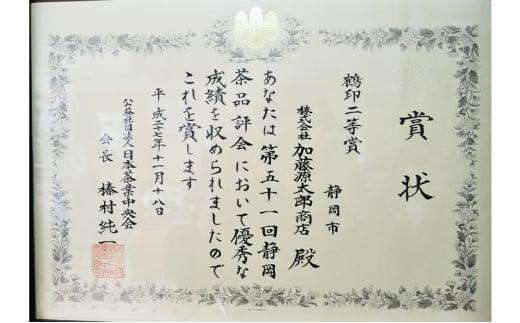 賞状
鶴印二等賞
静岡市
株式会社 加藤源太郎商店 殿
あなたは第五十一回静岡
茶品評会において優秀な
成績を収められましたので
これを賞します
平成二十七年十一月十八日
公益社団法人 日本茶業中央会
会長 榛村純一